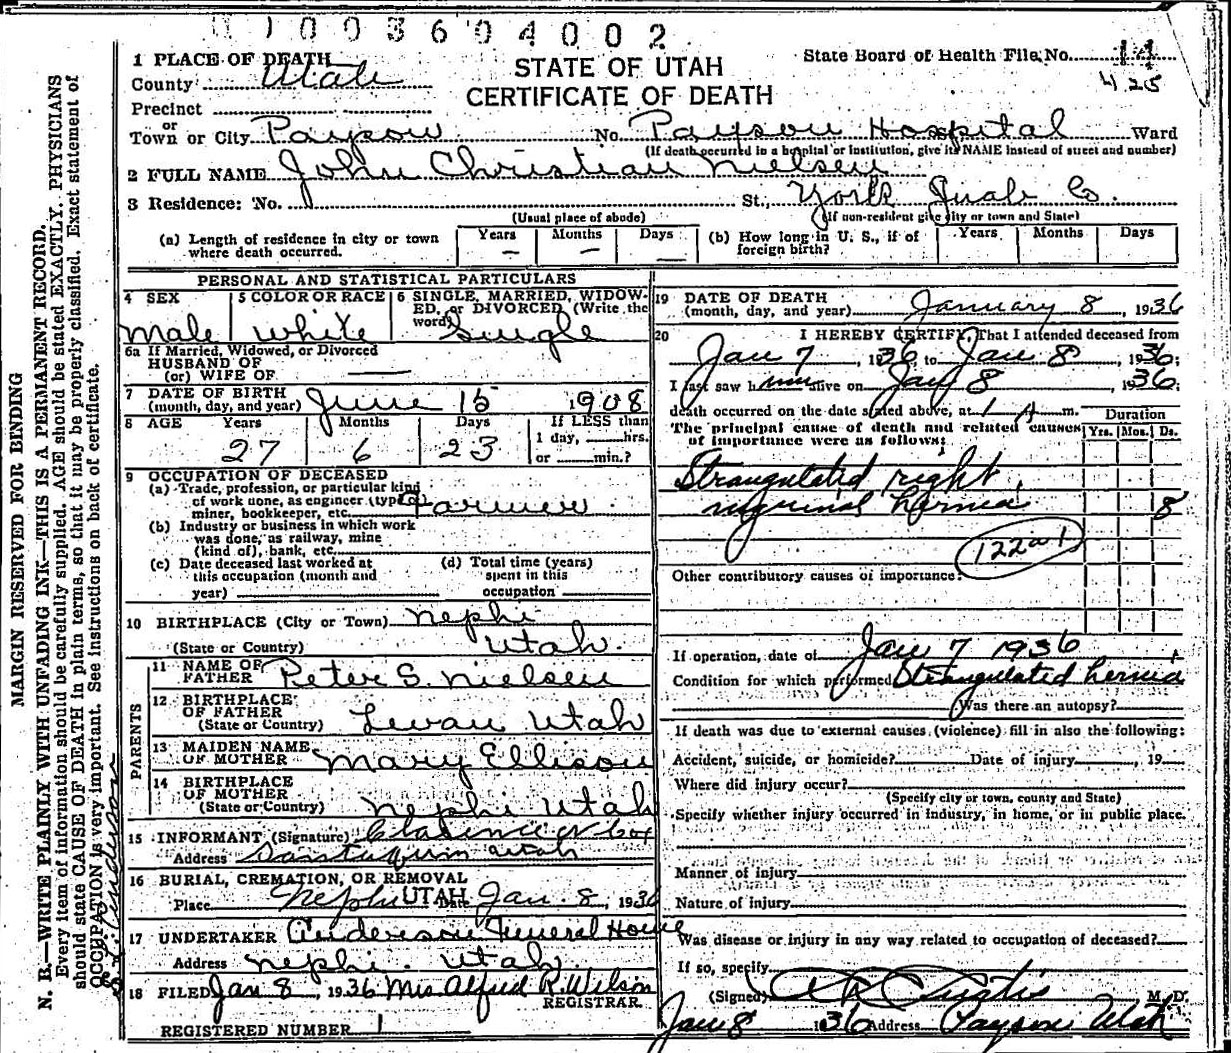 1003604002
1 PLACE OF DEATH
County Utah
STATE OF UTAH
CERTIFICATE OF DEATH
State Board of Health File No. 14
425
Precinct
or
Town or City Payson No. Payson Hospital Ward
(If death occurred in a hospital or institution, give its NAME instead of street and number)
2 FULL NAME John Christian Nielsen
3 Residence: No. St., York Juab Co.
(Usual place of abode) (If non-resident give city or town and State)
(a) Length of residence in city or town where death occurred. Years — Months — Days —
(b) How long in U. S., if of foreign birth? Years Months Days
PERSONAL AND STATISTICAL PARTICULARS
4 SEX Male
5 COLOR OR RACE White
6 SINGLE, MARRIED, WIDOWED, or DIVORCED (Write the word) Single
6a If Married, Widowed, or Divorced
HUSBAND OF
(or) WIFE OF —
7 DATE OF BIRTH
(month, day, and year) June 15 1908
8 AGE Years 27 Months 6 Days 23
If LESS than
1 day, hrs.
or min.?
9 OCCUPATION OF DECEASED
(a) Trade, profession, or particular kind
of work done, as engineer (type of)
miner, bookkeeper, etc. Farmer
(b) Industry or business in which work
was done, as railway, mine
(kind of), bank, etc.
(c) Date deceased last worked at
this occupation (month and
year)
(d) Total time (years)
spent in this
occupation
10 BIRTHPLACE (City or Town) Nephi
(State or Country) Utah.
PARENTS
11 NAME OF
FATHER Peter S. Nielsen
12 BIRTHPLACE
OF FATHER
(State or Country) Levan Utah
13 MAIDEN NAME
OF MOTHER Mary Ellison
14 BIRTHPLACE
OF MOTHER
(State or Country) Nephi Utah
15 INFORMANT (Signature) Clarence N Cox
Address Santaquin Utah
16 BURIAL, CREMATION, OR REMOVAL
Place Nephi UTAH Date Jan. 8, 1936
17 UNDERTAKER Anderson Funeral Home
Address Nephi. Utah.
18 FILED Jan 8, 1936 Mrs Alfred R. Wilson
REGISTRAR.
REGISTERED NUMBER 1
19 DATE OF DEATH
(month, day, and year) January 8, 1936
20 I HEREBY CERTIFY, That I attended deceased from
Jan 7, 1936 to Jan 8, 1936;
I last saw him alive on Jan 8, 1936;
death occurred on the date stated above, at 1 A m.
The principal cause of death and related causes
of importance were as follows:
Duration
Yrs. Mos. Ds.
Strangulated right
inguinal hernia 8
122a1
Other contributory causes of importance:
If operation, date of Jan 7 1936
Condition for which performed Strangulated hernia
Was there an autopsy?
If death was due to external causes (violence) fill in also the following:
Accident, suicide, or homicide? Date of injury , 19
Where did injury occur?
(Specify city or town, county and State)
Specify whether injury occurred in industry, in home, or in public place.
Manner of injury
Nature of injury
Was disease or injury in any way related to occupation of deceased?
If so, specify
(Signed) Curtis M. D.
Jan 8 1936 Address Payson Utah
MARGIN RESERVED FOR BINDING
N. B.—WRITE PLAINLY WITH UNFADING INK—THIS IS A PERMANENT RECORD.
Every item of information should be carefully supplied. AGE should be stated EXACTLY. PHYSICIANS
should state CAUSE OF DEATH in plain terms, so that it may be properly classified. Exact statement of
OCCUPATION is very important. See instructions on back of certificate.